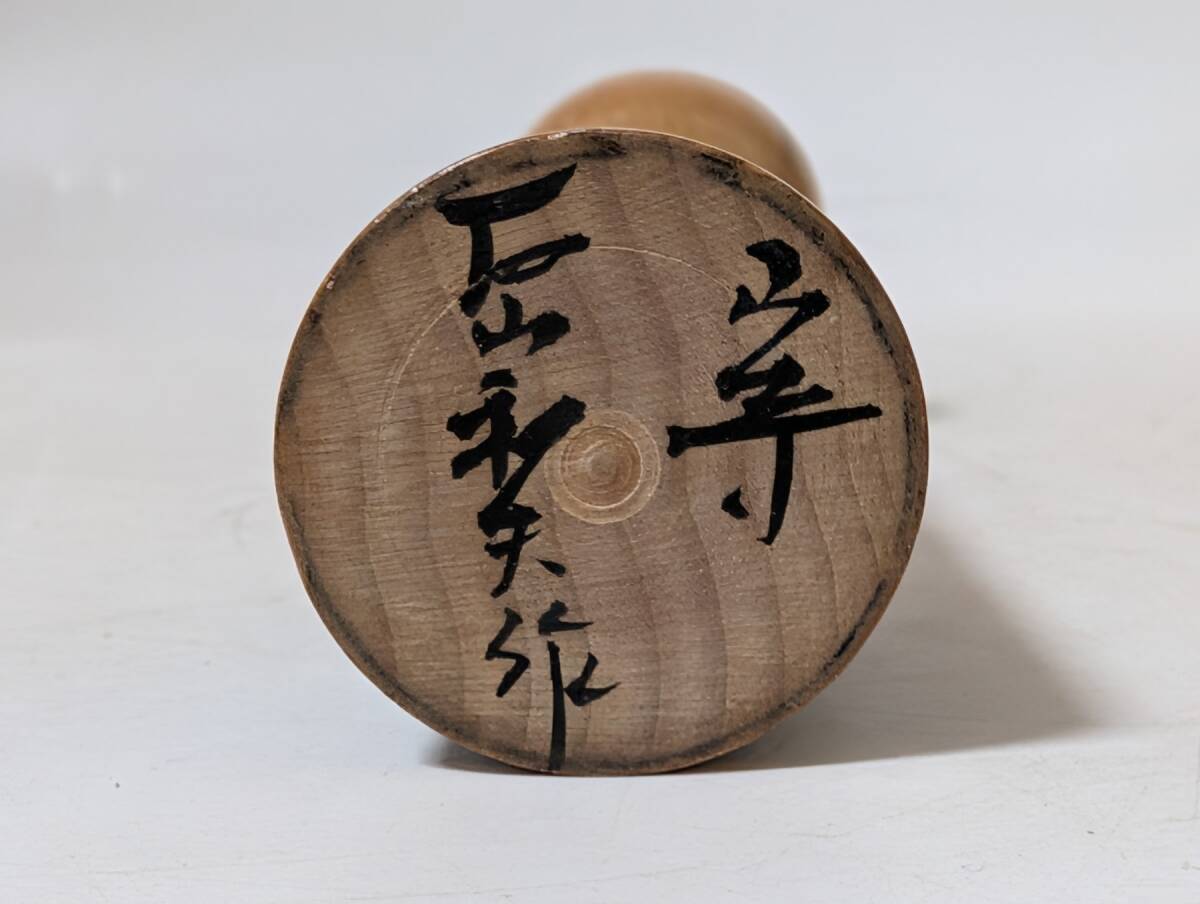 山寺
石山和夫作